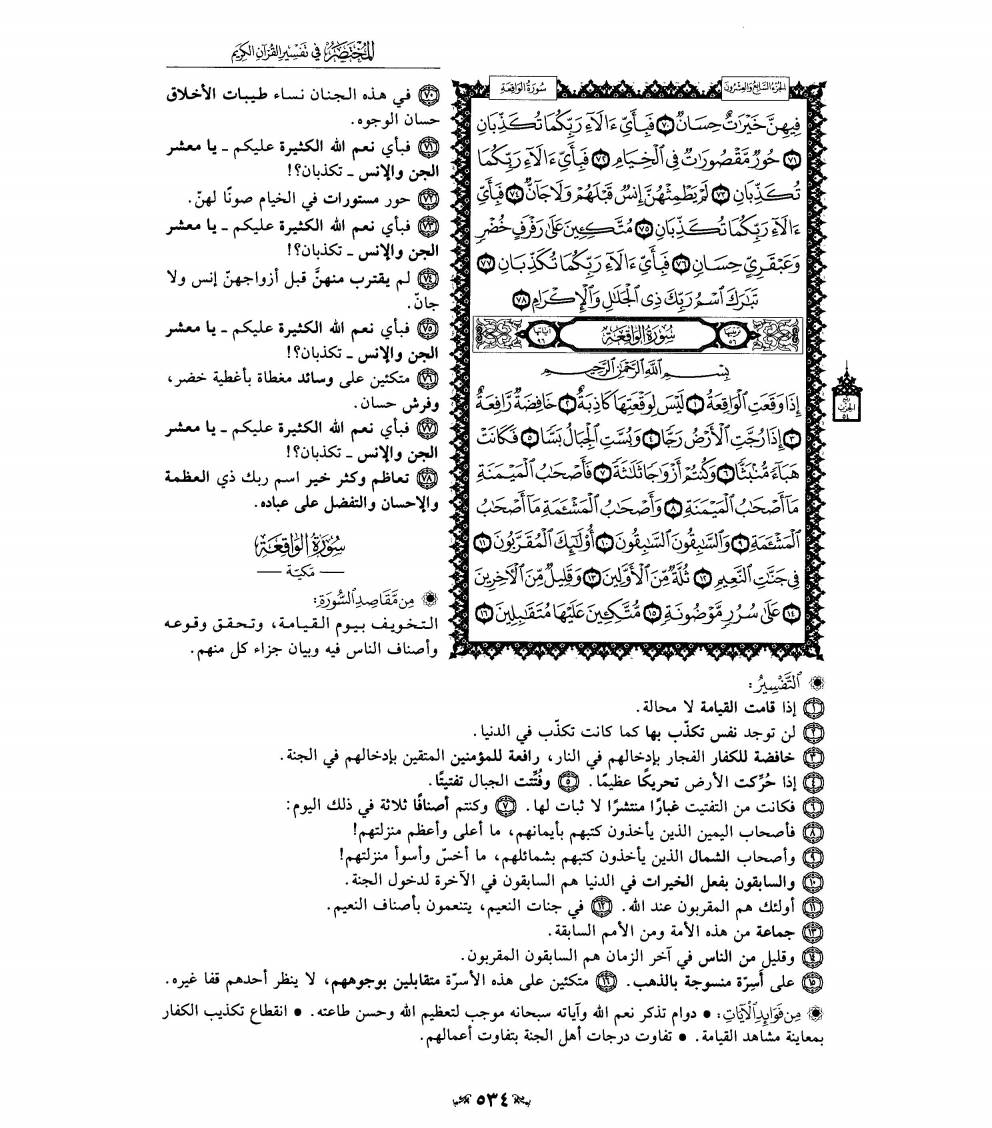 المختصر في تفسير القرآن الكريم
الجزء السابع والعشرون
سورة الواقعة
فِيهِنَّ خَيْرَٰتٌ حِسَانٌ ٧٠ فَبِأَيِّ ءَالَآءِ رَبِّكُمَا تُكَذِّبَانِ
٧١ حُورٌ مَّقْصُورَٰتٌ فِي ٱلْخِيَامِ ٧٢ فَبِأَيِّ ءَالَآءِ رَبِّكُمَا
تُكَذِّبَانِ ٧٣ لَمْ يَطْمِثْهُنَّ إِنسٌ قَبْلَهُمْ وَلَا جَآنٌّ ٧٤ فَبِأَيِّ
ءَالَآءِ رَبِّكُمَا تُكَذِّبَانِ ٧٥ مُتَّكِـِٔينَ عَلَىٰ رَفْرَفٍ خُضْرٍ
وَعَبْقَرِيٍّ حِسَانٍ ٧٦ فَبِأَيِّ ءَالَآءِ رَبِّكُمَا تُكَذِّبَانِ ٧٧
تَبَٰرَكَ ٱسْمُ رَبِّكَ ذِي ٱلْجَلَٰلِ وَٱلْإِكْرَامِ ٧٨
ترتيبها ٥٦
سُورَةُ الوَاقِعَةِ
آياتها ٩٦
بِسْمِ ٱللَّهِ ٱلرَّحْمَٰنِ ٱلرَّحِيمِ
إِذَا وَقَعَتِ ٱلْوَاقِعَةُ ١ لَيْسَ لِوَقْعَتِهَا كَاذِبَةٌ ٢ خَافِضَةٌ رَّافِعَةٌ
٣ إِذَا رُجَّتِ ٱلْأَرْضُ رَجًّا ٤ وَبُسَّتِ ٱلْجِبَالُ بَسًّا ٥ فَكَانَتْ
هَبَآءً مُّنۢبَثًّا ٦ وَكُنتُمْ أَزْوَٰجًا ثَلَٰثَةً ٧ فَأَصْحَٰبُ ٱلْمَيْمَنَةِ
مَآ أَصْحَٰبُ ٱلْمَيْمَنَةِ ٨ وَأَصْحَٰبُ ٱلْمَشْـَٔمَةِ مَآ أَصْحَٰبُ
ٱلْمَشْـَٔمَةِ ٩ وَٱلسَّٰبِقُونَ ٱلسَّٰبِقُونَ ١٠ أُوْلَٰٓئِكَ ٱلْمُقَرَّبُونَ ١١
فِي جَنَّٰتِ ٱلنَّعِيمِ ١٢ ثُلَّةٌ مِّنَ ٱلْأَوَّلِينَ ١٣ وَقَلِيلٌ مِّنَ ٱلْءَاخِرِينَ
١٤ عَلَىٰ سُرُرٍ مَّوْضُونَةٍ ١٥ مُّتَّكِـِٔينَ عَلَيْهَا مُتَقَٰبِلِينَ ١٦
٧٠ في هذه الجنان نساء طيبات الأخلاق
حسان الوجوه.
٧١ فبأي نعم الله الكثيرة عليكم ـ يا معشر
الجن والإنس ـ تكذبان؟!
٧٢ حور مستورات في الخيام صونًا لهنّ.
٧٣ فبأي نعم الله الكثيرة عليكم ـ يا معشر
الجن والإنس ـ تكذبان؟!
٧٤ لم يقترب منهنَّ قبل أزواجهنّ إنس ولا
جانّ.
٧٥ فبأي نعم الله الكثيرة عليكم ـ يا معشر
الجن والإنس ـ تكذبان؟!
٧٦ متكئين على وسائد مغطاة بأغطية خضر،
وفرش حسان.
٧٧ فبأي نعم الله الكثيرة عليكم ـ يا معشر
الجن والإنس ـ تكذبان؟!
٧٨ تعاظم وكثر خير اسم ربك ذي العظمة
والإحسان والتفضل على عباده.
سُورَةُ الوَاقِعَةِ
— مَكيّة —
من مَقَاصِدِ السُّورَةِ:
التخويف بيوم القيامة، وتحقق وقوعه
وأصناف الناس فيه وبيان جزاء كل منهم.
التَّفْسِيرُ:
١ إذا قامت القيامة لا محالة.
٢ لن توجد نفس تكذّب بها كما كانت تكذّب في الدنيا.
٣ خافضة للكفار الفجار بإدخالهم في النار، رافعة للمؤمنين المتقين بإدخالهم في الجنة.
٤ إذا حُرِّكت الأرض تحريكًا عظيمًا. ٥ وفُتِّتت الجبال تفتيتًا.
٦ فكانت من التفتيت غبارًا منتشرًا لا ثبات لها. ٧ وكنتم أصنافًا ثلاثة في ذلك اليوم:
٨ فأصحاب اليمين الذين يأخذون كتبهم بأيمانهم، ما أعلى وأعظم منزلتهم!
٩ وأصحاب الشمال الذين يأخذون كتبهم بشمائلهم، ما أخسّ وأسوأ منزلتهم!
١٠ والسابقون بفعل الخيرات في الدنيا هم السابقون في الآخرة لدخول الجنة.
١١ أولئك هم المقربون عند الله. ١٢ في جنات النعيم، يتنعمون بأصناف النعيم.
١٣ جماعة من هذه الأمة ومن الأمم السابقة.
١٤ وقليل من الناس في آخر الزمان هم السابقون المقربون.
١٥ على أَسِرّة منسوجة بالذهب. ١٦ متكئين على هذه الأسرّة متقابلين بوجوههم، لا ينظر أحدهم قفا غيره.
مِن فَوَائِدِ الآيَاتِ: • دوام تذكر نعم الله وآياته سبحانه موجب لتعظيم الله وحسن طاعته. • انقطاع تكذيب الكفار
بمعاينة مشاهد القيامة. • تفاوت درجات أهل الجنة بتفاوت أعمالهم.
٥٣٤